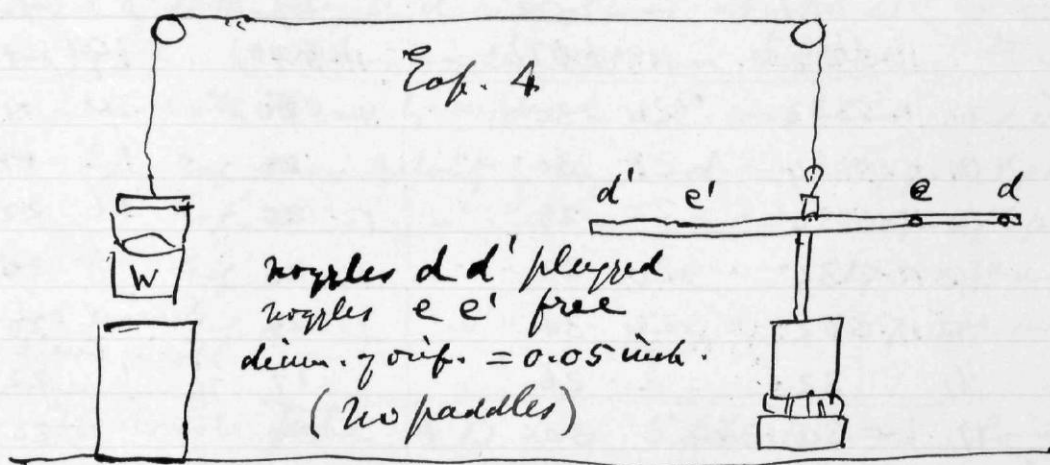 Exp. 4
d' e' e d
W
nozzles d d' plugged
nozzles e e' free
diam. of orif. = 0.05 inch.
(no paddles)